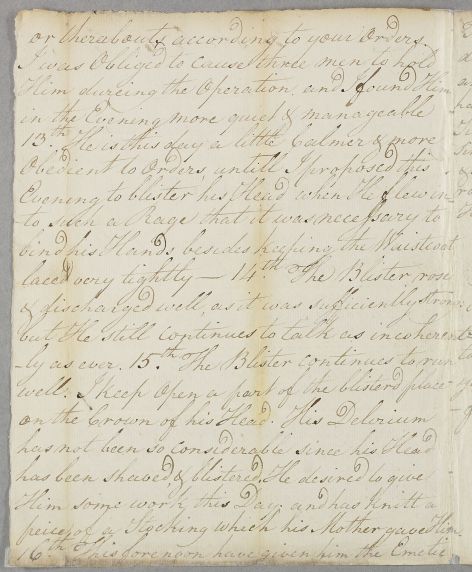 or thereabouts according to your Orders.
I was Obliged to cause three men to hold
Him dureing the Operation, and I found Him
in the Evening more quiet & manageable
13.th He is this day a little Calmer & more
Obedient to Orders, untill I proposed this
Evening to blister his Head when He flew in-
to such a Rage that it was necessary to
bind his Hands besides keeping the Waistcoat
laced very tightly — 14.th The Blister rose
& discharged well, as it was sufficiently strong
but He still continues to talk as incoherent
-ly as ever. 15.th The Blister continues to run
well. I keep Open a part of the blister'd place
on the Crown of his Head. His Delirium
has not been so considerable since his Head
has been shaved & blistered. He desired to give
Him some work this Day, and has knitt a
peice of a Stocking which his Mother gave Him.
16.th This forenoon have given him the Emetic